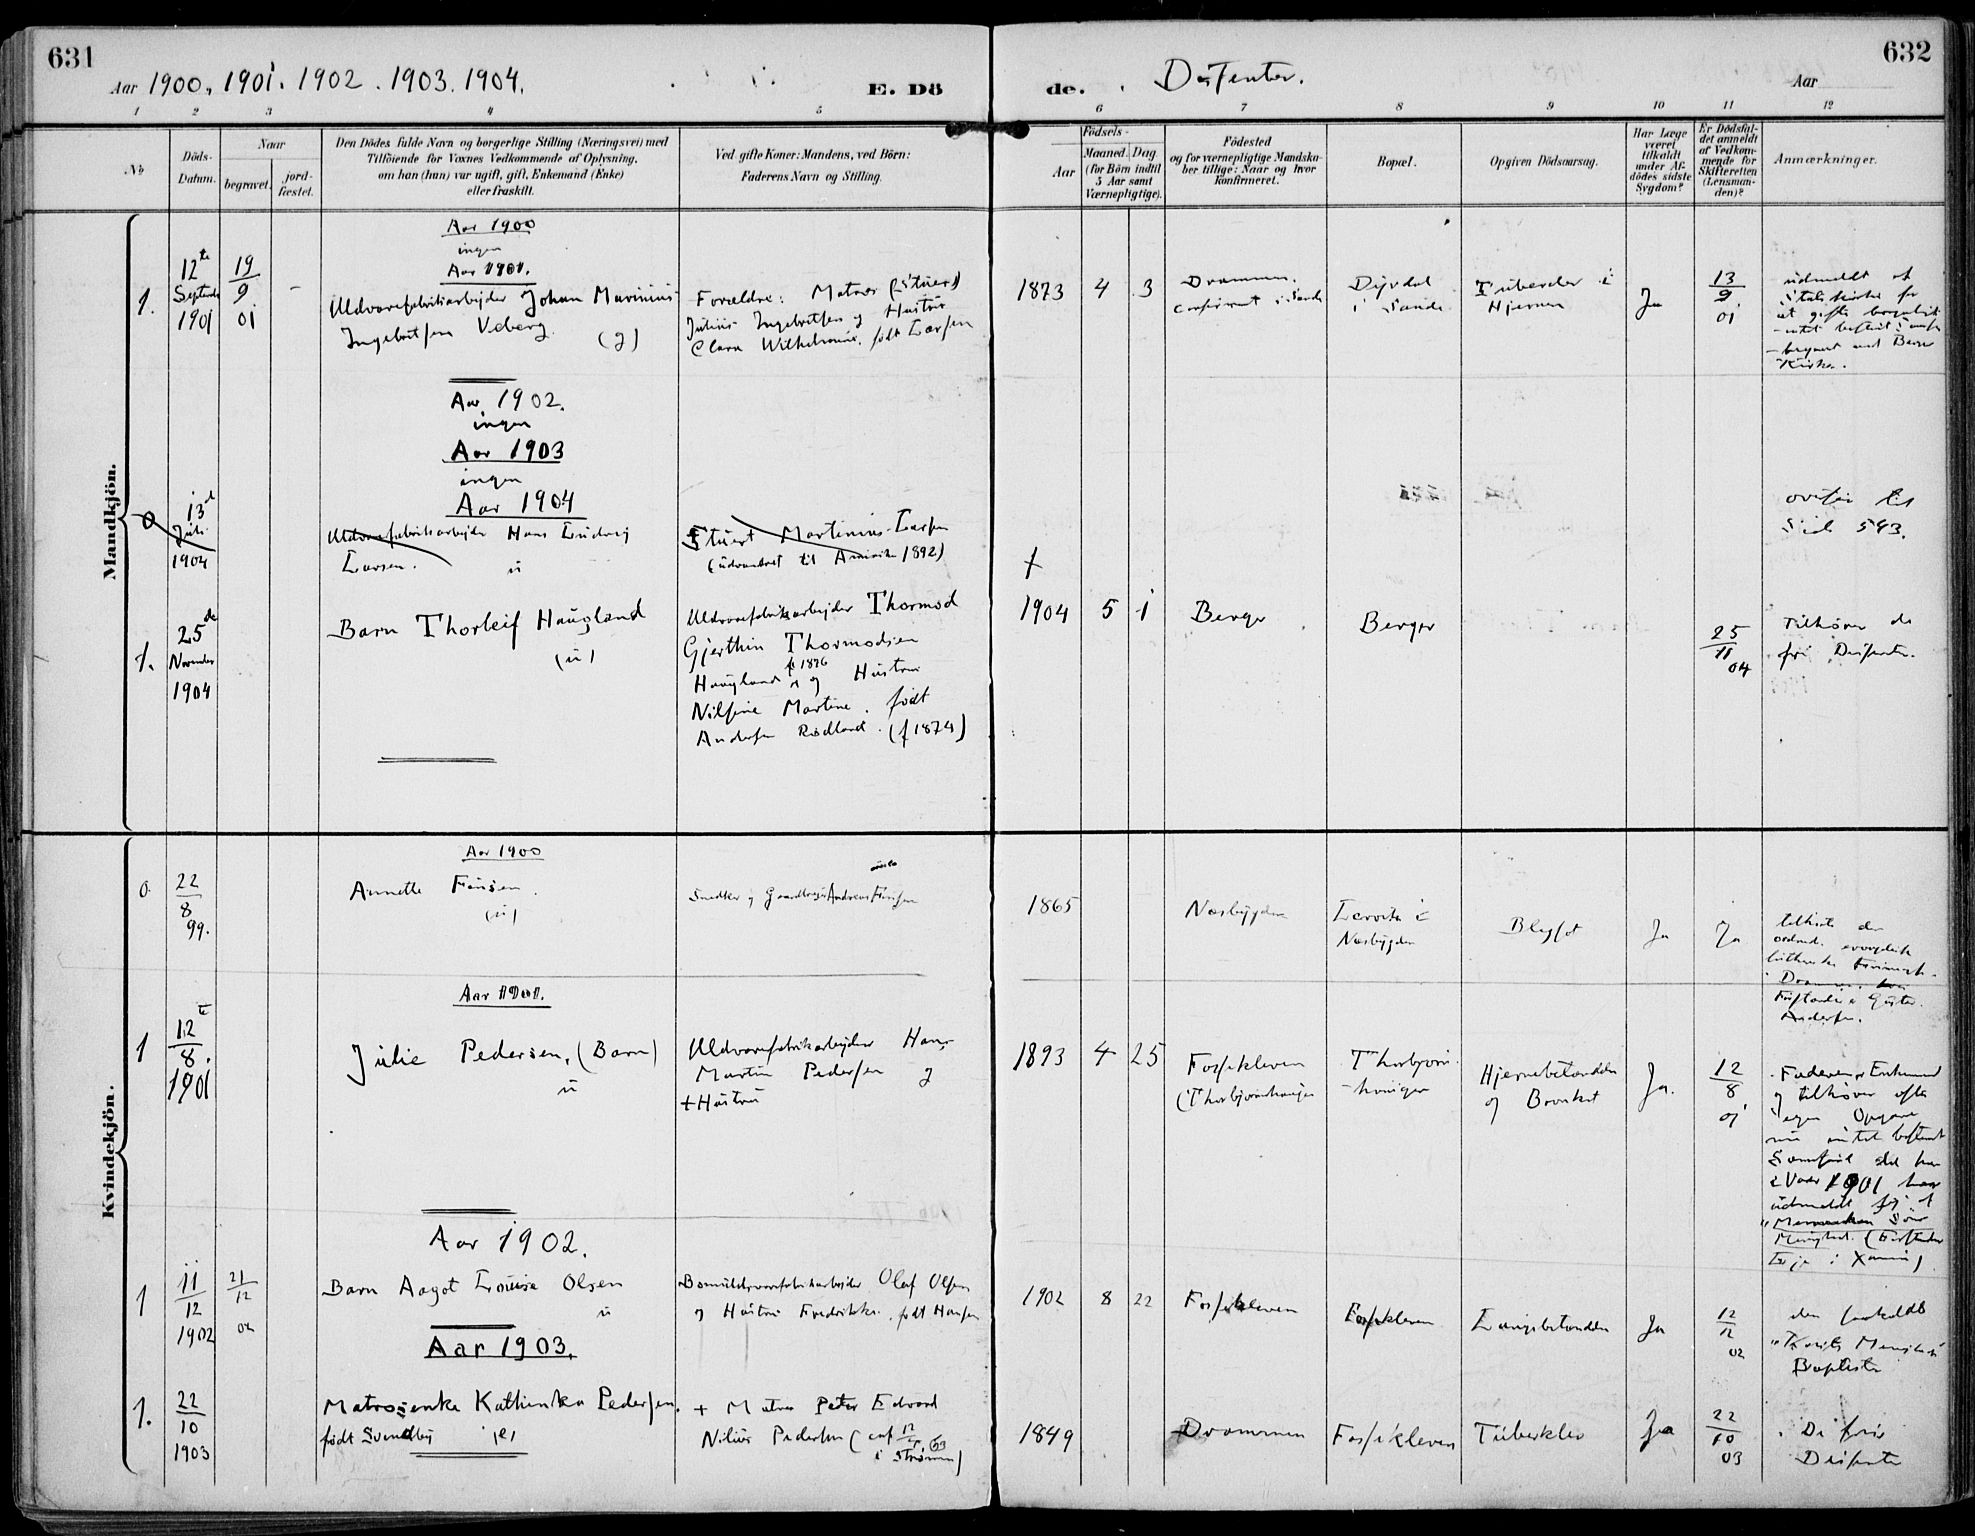 631
Aar 1900. 1901. 1902. 1903. 1904.
E. Dö
de.
Dissenter.
Aar
632
1 2 3 4 5 6 7 8 9 10 11 12
No
Döds-
Datum.
Naar
begravet.
jord-
fæstet.
Den Dödes fulde Navn og borgerlige Stilling (Næringsvei) med
Tilföiende for Voxnes Vedkommende af Oplysning,
om han (hun) var ugift, gift, Enkemand (Enke)
eller fraskilt.
Ved gifte Koner: Mandens, ved Börn:
Faderens Navn og Stilling.
Födsels-
Aar
Maaned. Dag
(for Börn indtil
5 Aar samt
Værnepligtige).
Födested
og for værnepligtige Mandska-
ber tillige: Naar og hvor
konfirmeret.
Bopæl.
Opgiven Dödsaarsag.
Har Læge
været
tilkaldt
under Af-
dödes sidste
Sygdom?
Er Dödsfal-
det anmeldt
af Vedkom-
mende for
Skifteretten
(Lensman-
den)?
Anmærkninger.
Mandkjön.
Aar 1900
ingen
Aar 1901.
1.
12te
Septemb
1901
19
9
01
-
Uldvarefabrikarbejder Johan Marinius
Ingebretsen Veberg.
(g)
Forældre: Matros (Stuert)
Julius Ingebretsen og Hustru
Clara Wilhelmine, født Larsen
1873 4 3
Drammen.
confirmert i Sande
Dypdal
i Sande
Tuberkler i
Hjernen
Ja
13
9
01
udmeldt af
Statskirken
Kirke.
Aar 1902.
ingen
Aar 1903
ingen
Aar 1904
0
13d
Juli
1904
Uldvarefabrikarbejder Hans Ludvig
Larsen.
u
Stuert Martinius Larsen
(udvandret til Amerika 1892)
overført til
Side 543.
1.
25de
November
1904
Barn Thorleif Haugland
(u)
Uldvarefabrikarbejder Thormod
Gjerthin Thormodsen
f 1876
Haugland og Hustru
Nilsine Martine. født
Andersen Rødland. (f 1874)
1904 5 1
Berger
Berger
25
11
04
Tilhører de
fri Dissenter.
Kvindekjön.
Aar 1900
0.
22
8
99.
Annette Fürsen.
(u)
Snedker og Gaardbruger Andreas Fürsen
1865
Næsbygden
i
Næsbygden
Blegsot
Ja
Ja
tilhørte den
evangelisk
lutherske Frimenigh.
i Drammen.
Forstander Gustav
Andersen.
Aar 1901.
1
12te
8.
1901
Julie Pedersen, (Barn)
u
Uldvarefabrikarbejder Hans
Martin Pedersen g
+ Hustru
1893 4 25
Fossekleven
(Thorbjørnhaugen
Thorbjørn-
haugen
Hjernebetændelse
og Bronkit
Ja.
12
8
01
Faderen er Enkemand
og tilhører efter
egen Opgave
nu intet bestemt
Samfund
i Vaar 1901 har
udmeldt sig af
Menighed. (Forstander
Aar 1902.
1
11
12
1902
21
12
02
Barn Aagot Louise Olsen
u
Bomuldsvarefabrikarbejder Olaf Olsen
og Hustru Fredrikke. født Hansen
1902 8 22
Fossekleven
Fossekleven
Lungebetændelse
Ja
12
12
02
den saakaldte
"Kristi Menighed"
Baptister
Aar 1903.
1.
22
10
1903
Matrosenke Kathinka Pedersen.
født Svendby (e)
+ Matros Peter Edvard
Nilius Pedersen
i Strømm)
1849
Drammen
Fossekleven
Tuberkler
Ja
22
10
03
De frie
Dissenter